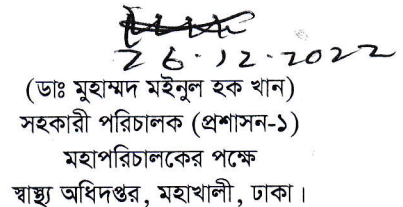 26.12.2022
(ডাঃ মুহাম্মদ মইনুল হক খান)
সহকারী পরিচালক (প্রশাসন-১)
মহাপরিচালকের পক্ষে
স্বাস্থ্য অধিদপ্তর, মহাখালী, ঢাকা।